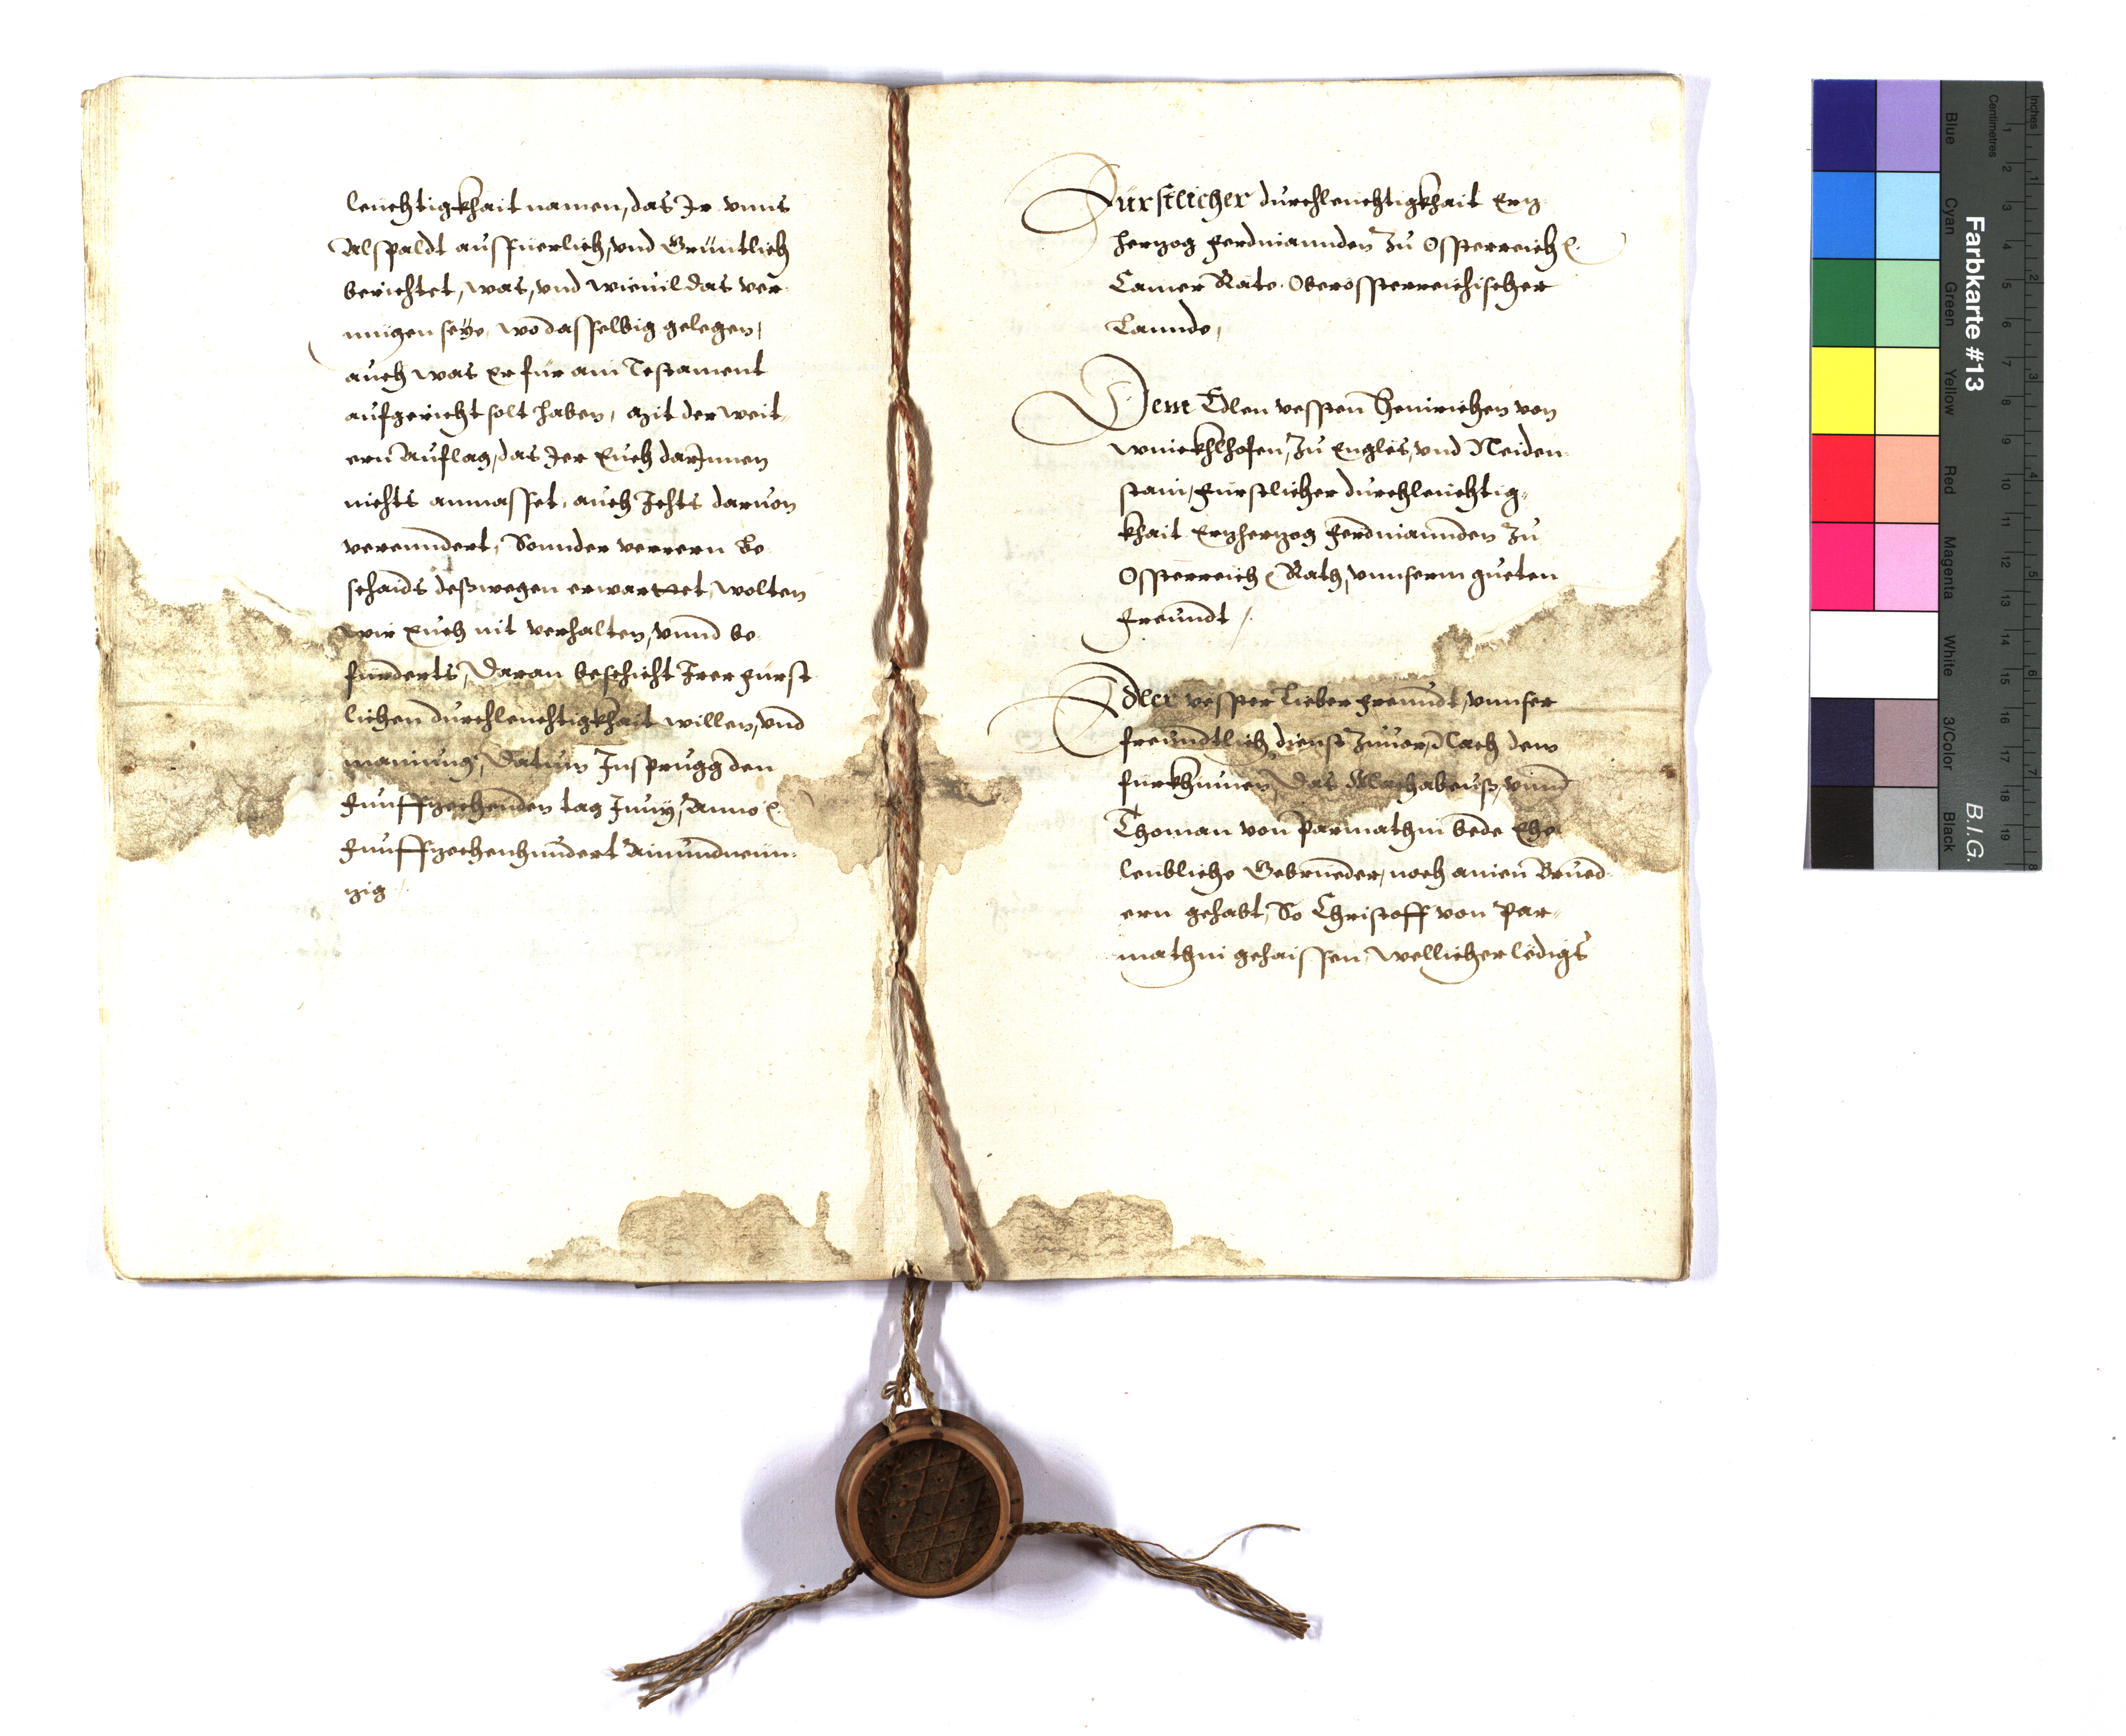 leuchtigkhait namen, das Ir vnns
Alspaldt ausfuerlich, vnd Grüntlich
berichtet, was, vnd wieuil das ver-
mügen seÿe, wo dasselbig gelegen,
auch was Er für ain Testament
aufgericht solt haben, mit der weit-
ern Auflag, das Jer Euch darInnen
nichts anmasset, auch Ichts daruon
verenndert, Sonnder verrern Be-
schaids deßwegen erwarttet, wolten
wir Euch nit verhalten, vnnd be-
fürderts, Daran beschicht Irer Fürst
lichen durchleuchtigkhait willen, vnd
mainung, Datum Insprugg den
Funffzechenden tag Junÿ, Anno
Funffzechenhundert Ainundneün-
zig /.
Fürstlicher durchleuchtigkhait Erz
herzog Ferdinannden Zu Ossterreich
Camer Räte Oberossterreichischer
Lannde,
Dem Edlen vessten Heinrichen von
Winckhlhofen, Zu Englös, vnd Neiden-
stain, Fürstlicher durchleuchtig-
khait Erzherzog Ferdinannden Zu
Ossterreich Rath, vnnserm gueten
Freundt /.
Edler vesster Lieber Freundt, vnnser
freundtlich dienst Zuuor, Nach dem
fürkhumen, Das Machabeus, vnnd
Thoman von Parmathin bede Ehe-
leibliche Gebrueder, noch ainen Brued-
ern gehabt, So Christoff von Par-
mathin gehaissen, wellicher ledigs
Farbkarte #13
B.I.G.
Inches
Centimetres
Blue
Cyan
Green
Yellow
Red
Magenta
White
3/Color
Black
1 2 3 4 5 6 7 8
1 2 3 4 5 6 7 8 9 10 11 12 13 14 15 16 17 18 19